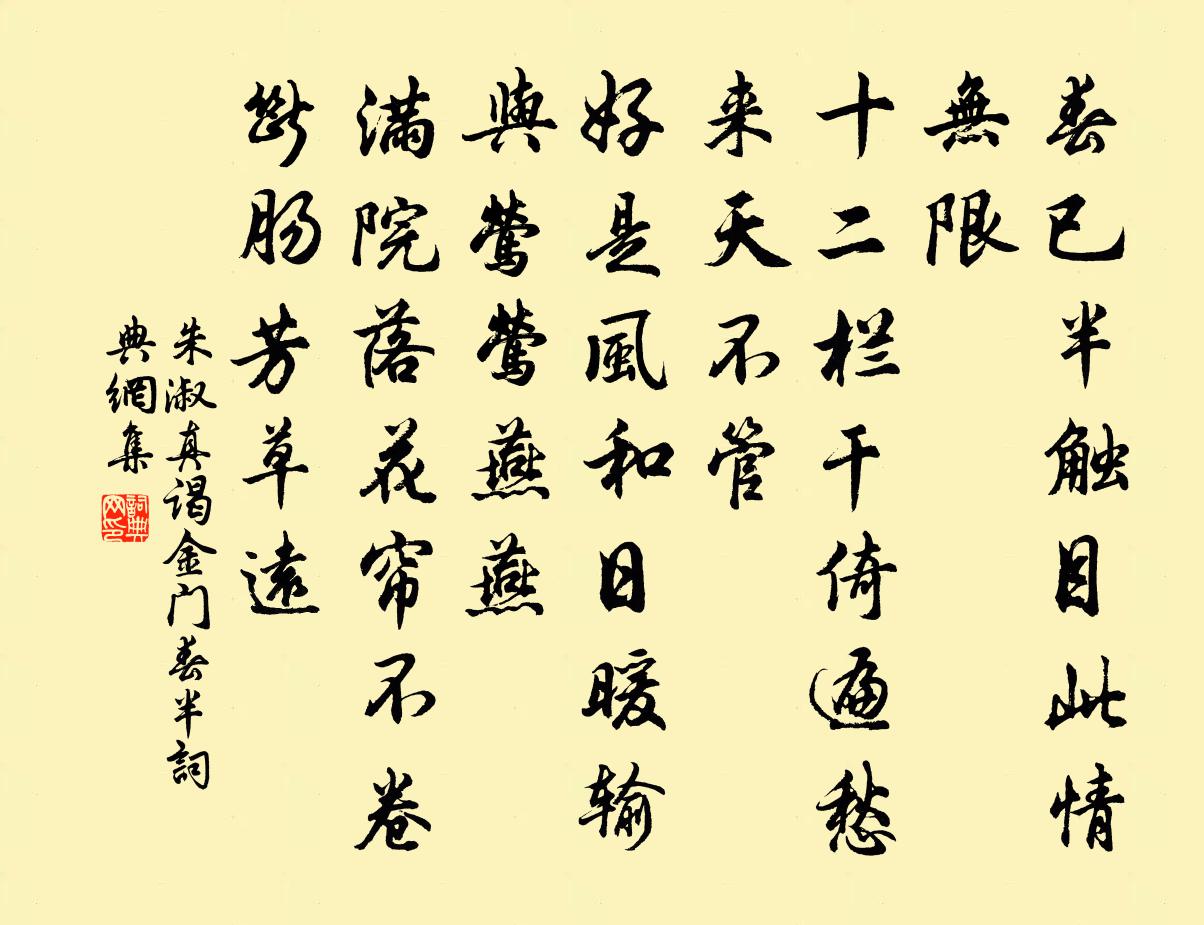 春已半触目此情
無限
十二栏干倚遍愁
来天不管
好是風和日暖输
與鶯鶯燕燕
满院落花帘不卷
断肠芳草遠
朱淑真谒金门春半詞
典網集
詞典網印